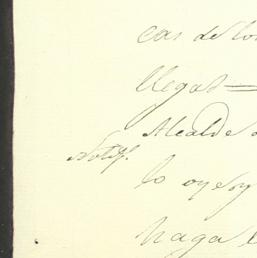 cas de lo
llegas
Alcalde
Notif.
lo oye y
haga